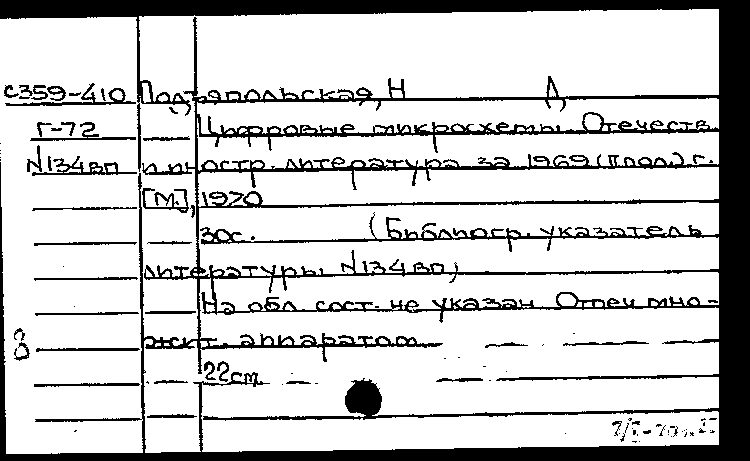 с359-410 Подъяпольская, Н Д,
Г-72 Цифровые микросхемы. Отечеств.
N134вп и иностр. литература за 1969 (II пол.) г.
[М.], 1970
30с. (Библиогр. указатель
литературы N134вп)
На обл. сост. не указан. Отпеч мно-
жит. аппаратом
22см.